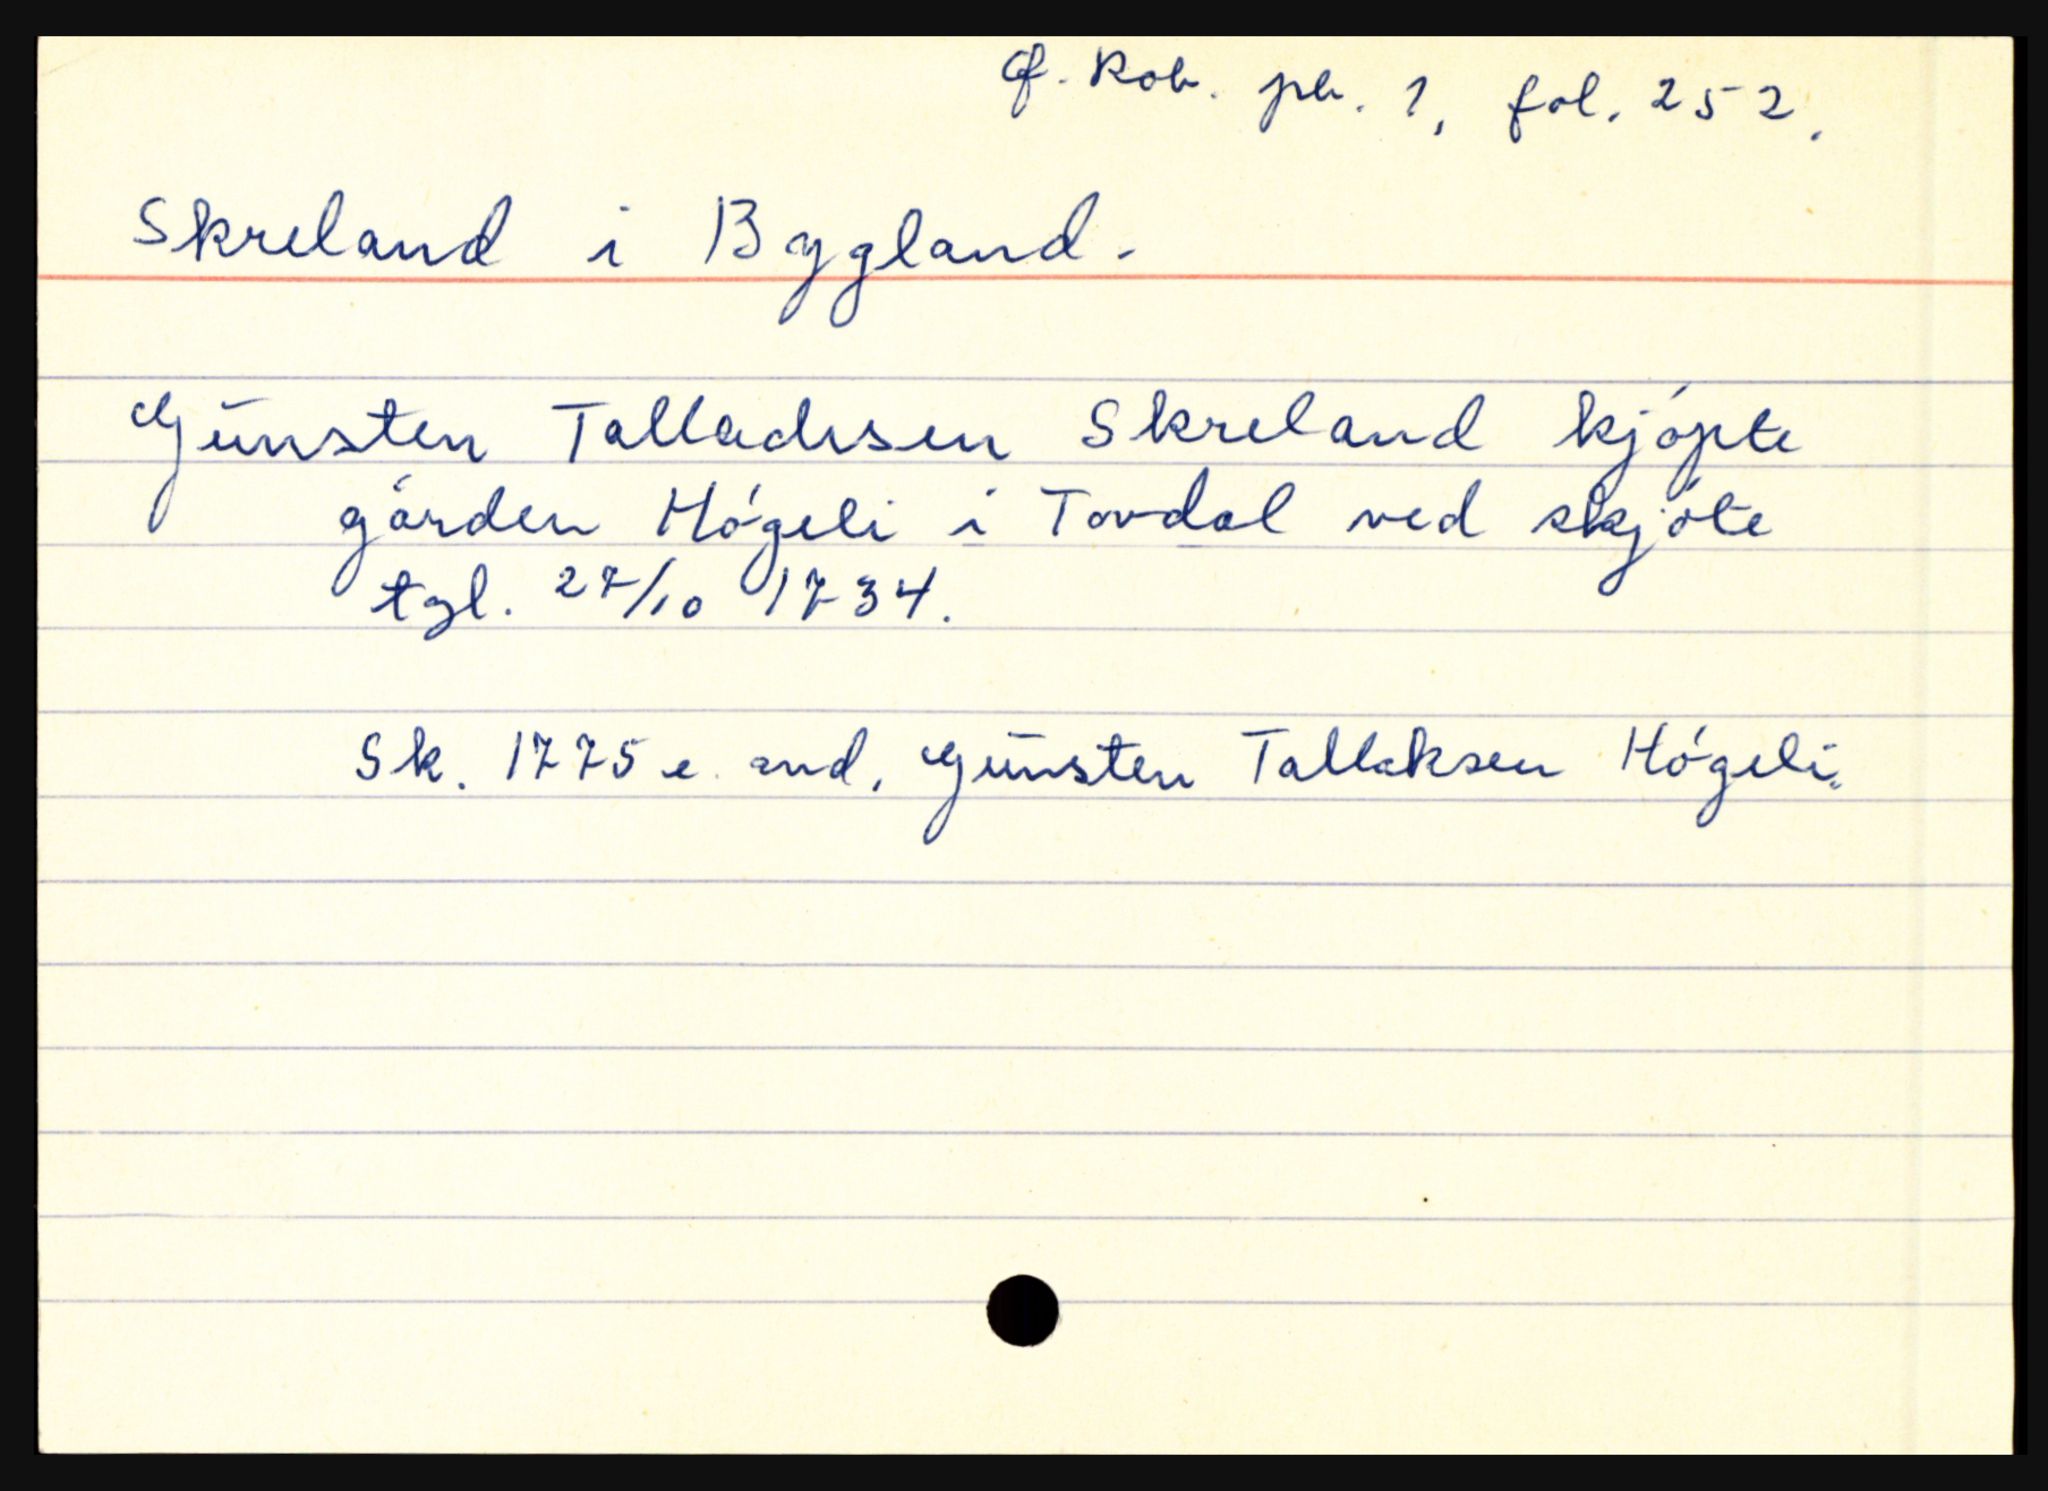 Rob. pb. 1, fol. 252.
Skreland i Bygland.
Gunsten Tallachsen Skreland kjópte
gården Hógeli i Tovdal ved skjóte
tgl. 27/10 1734.
Sk. 1775 e. and. Gunsten Tallaksen Hógeli.